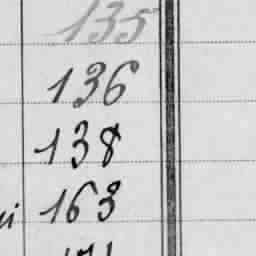 135
136
138
163